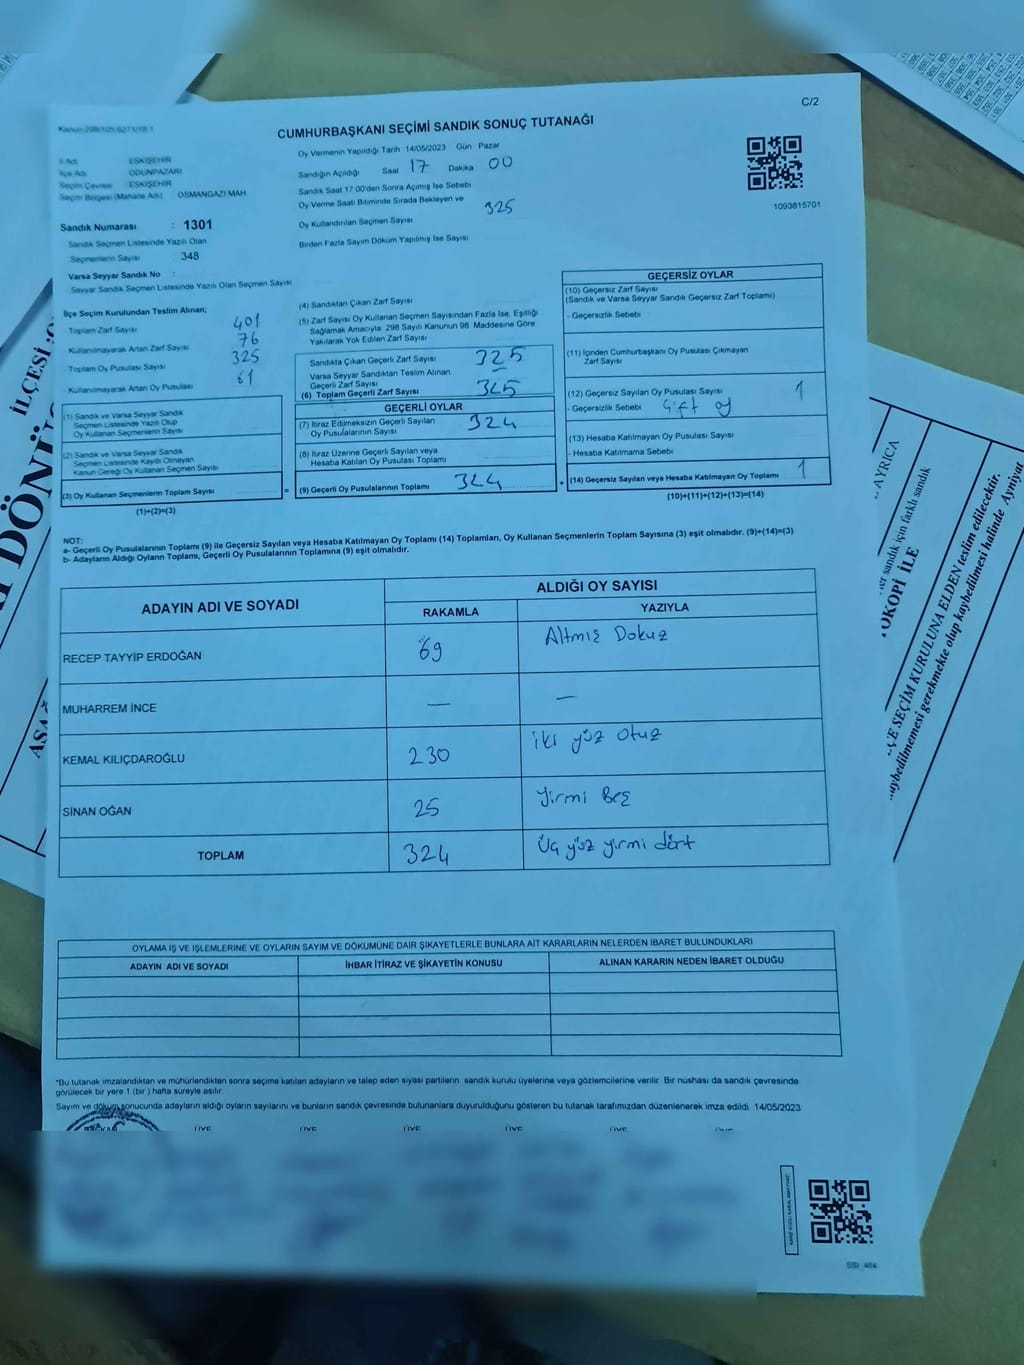 C/2
Kanun 298/105 6271/19-1
CUMHURBAŞKANI SEÇİMİ SANDIK SONUÇ TUTANAĞI
İl Adı ESKİŞEHİR
İlçe Adı ODUNPAZARI
Seçim Çevresi ESKİŞEHİR
Seçim Bölgesi (Mahalle Adı) OSMANGAZİ MAH.
Sandık Numarası : 1301
Sandık Seçmen Listesinde Yazılı Olan
Seçmenlerin Sayısı 348
Varsa Seyyar Sandık No :
Seyyar Sandık Seçmen Listesinde Yazılı Olan Seçmen Sayısı
Oy Vermenin Yapıldığı Tarih 14/05/2023 Gün Pazar
Sandığın Açıldığı Saat 17 Dakika 00
Sandık Saat 17.00'den Sonra Açımış İse Sebebi
Oy Verme Saati Bitiminde Sırada Bekleyen ve
Oy Kullandırılan Seçmen Sayısı 325
Birden Fazla Sayım Döküm Yapılmış İse Sayısı
1093815701
İlçe Seçim Kurulundan Teslim Alınan;
- Toplam Zarf Sayısı 401
- Kullanılmayarak Artan Zarf Sayısı 76
- Toplam Oy Pusulası Sayısı 325
- Kullanılmayarak Artan Oy Pusulası 61
(1) Sandık ve Varsa Seyyar Sandık
Seçmen Listesinde Yazılı Olup
Oy Kullanan Seçmenlerin Sayısı
(2) Sandık ve Varsa Seyyar Sandık
Seçmen Listesinde Kayıtlı Olmayan
Kanun Gereği Oy Kullanan Seçmen Sayısı
(3) Oy Kullanan Seçmenlerin Toplam Sayısı =
(1)+(2)=(3)
(4) Sandıktan Çıkan Zarf Sayısı
(5) Zarf Sayısı Oy Kullanan Seçmen Sayısından Fazla İse, Eşitliği
Sağlamak Amacıyla 298 Sayılı Kanunun 98. Maddesine Göre
Yakılarak Yok Edilen Zarf Sayısı
Sandıkta Çıkan Geçerli Zarf Sayısı 325
Varsa Seyyar Sandıktan Teslim Alınan
Geçerli Zarf Sayısı
(6) Toplam Geçerli Zarf Sayısı 325
GEÇERLİ OYLAR
(7) İtiraz Edilmeksizin Geçerli Sayılan
Oy Pusulalarının Sayısı 324
(8) İtiraz Üzerine Geçerli Sayılan veya
Hesaba Katılan Oy Pusulası Toplamı
(9) Geçerli Oy Pusulalarının Toplamı 324 +
GEÇERSİZ OYLAR
(10) Geçersiz Zarf Sayısı
(Sandık ve Varsa Seyyar Sandık Geçersiz Zarf Toplamı)
- Geçersizlik Sebebi
(11) İçinden Cumhurbaşkanı Oy Pusulası Çıkmayan
Zarf Sayısı
(12) Geçersiz Sayılan Oy Pusulası Sayısı 1
- Geçersizlik Sebebi Çift oy
(13) Hesaba Katılmayan Oy Pusulası Sayısı
- Hesaba Katılmama Sebebi
(14) Geçersiz Sayılan veya Hesaba Katılmayan Oy Toplamı 1
(10)+(11)+(12)+(13)=(14)
NOT:
a- Geçerli Oy Pusulalarının Toplamı (9) ile Geçersiz Sayılan veya Hesaba Katılmayan Oy Toplamı (14) Toplamları, Oy Kullanan Seçmenlerin Toplam Sayısına (3) eşit olmalıdır. (9)+(14)=(3)
b- Adayların Aldığı Oyların Toplamı, Geçerli Oy Pusulalarının Toplamına (9) eşit olmalıdır.
ADAYIN ADI VE SOYADI
ALDIĞI OY SAYISI
RAKAMLA YAZIYLA
RECEP TAYYİP ERDOĞAN 69 Altmış Dokuz
MUHARREM İNCE — —
KEMAL KILIÇDAROĞLU 230 iki yüz otuz
SİNAN OĞAN 25 Yirmi Beş
TOPLAM 324 Üç yüz yirmi dört
OYLAMA İŞ VE İŞLEMLERİNE VE OYLARIN SAYIM VE DÖKÜMÜNE DAİR ŞİKAYETLERLE BUNLARA AİT KARARLARIN NELERDEN İBARET BULUNDUKLARI
ADAYIN ADI VE SOYADI İHBAR İTİRAZ VE ŞİKAYETİN KONUSU ALINAN KARARIN NEDEN İBARET OLDUĞU
*Bu tutanak imzalandıktan ve mühürlendikten sonra seçime katılan adayların ve talep eden siyasi partilerin sandık kurulu üyelerine veya gözlemcilerine verilir. Bir nüshası da sandık çevresinde
görülecek bir yere 1 (bir ) hafta süreyle asılır.
Sayım ve döküm sonucunda adayların aldığı oyların sayılarını ve bunların sandık çevresinde bulunanlara duyurulduğunu gösteren bu tutanak tarafımızdan düzenlenerek imza edildi. 14/05/2023
ÜYE ÜYE ÜYE ÜYE ÜYE ÜYE
İLÇESİ
DÖNÜ
ASA
AYRICA
her sandık için farklı sandık
TOKOPİ İLE
ÇE SEÇİM KURULUNA ELDEN teslim edilecektir.
kaybedilmemesi gerekmekte olup kaybedilmesi halinde Ayniyat